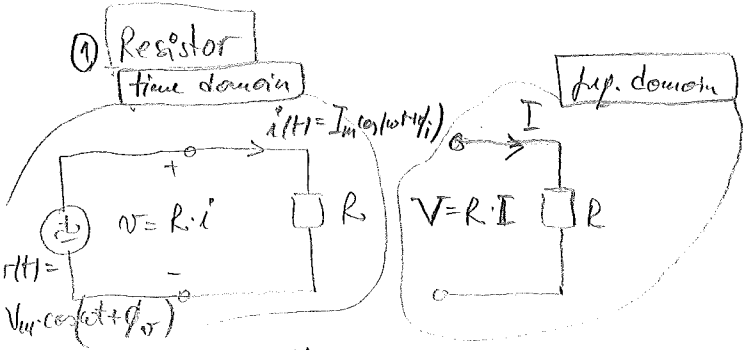 ① Resistor
time domain
i(t) = I_m cos(ωt+ϕ_i)
+
v = R·i
R
-
v(t) =
V_m·cos(ωt+ϕ_v)
freq. domain
I
V = R·I
R